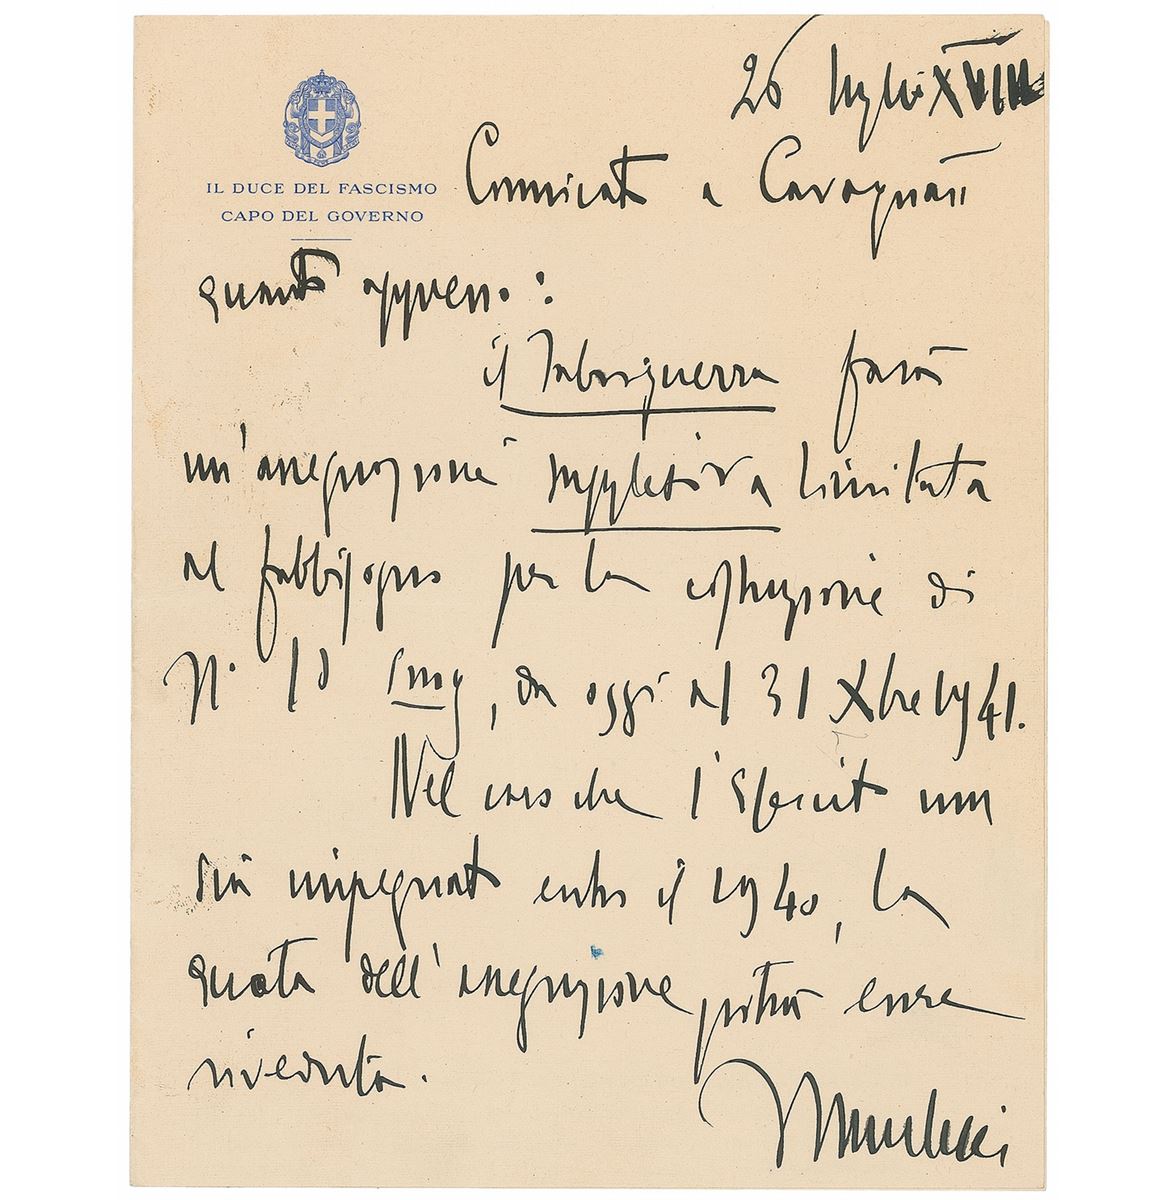 26 luglio XVIII
IL DUCE DEL FASCISMO
CAPO DEL GOVERNO
Comunicato a Cavagnari
quanto appresso:
il Fabriguerra farà
un'assegnazione suppletiva limitata
al fabbisogno per la costruzione di
N. 10 Smg, da oggi al 31 Xbre 1941.
Nel caso che l'Esercito non
sia impegnato entro il 1940, la
quota dell'assegnazione potrà essere
riveduta.
Mussolini